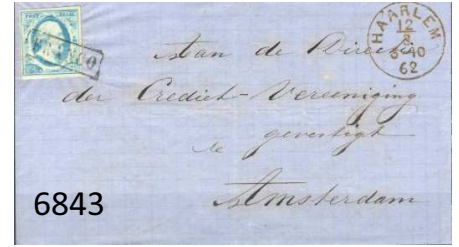 FRANCO
HAARLEM
12
8-10
62
Aan de Directie
der Crediet-Vereeniging
gevestigd
te
Amsterdam
6843